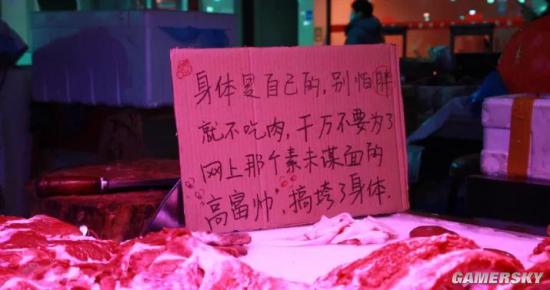 身体是自己的,别怕胖
就不吃肉,千万不要为了
网上那个素未谋面的
高富帅,搞垮了身体.
GAMERSKY